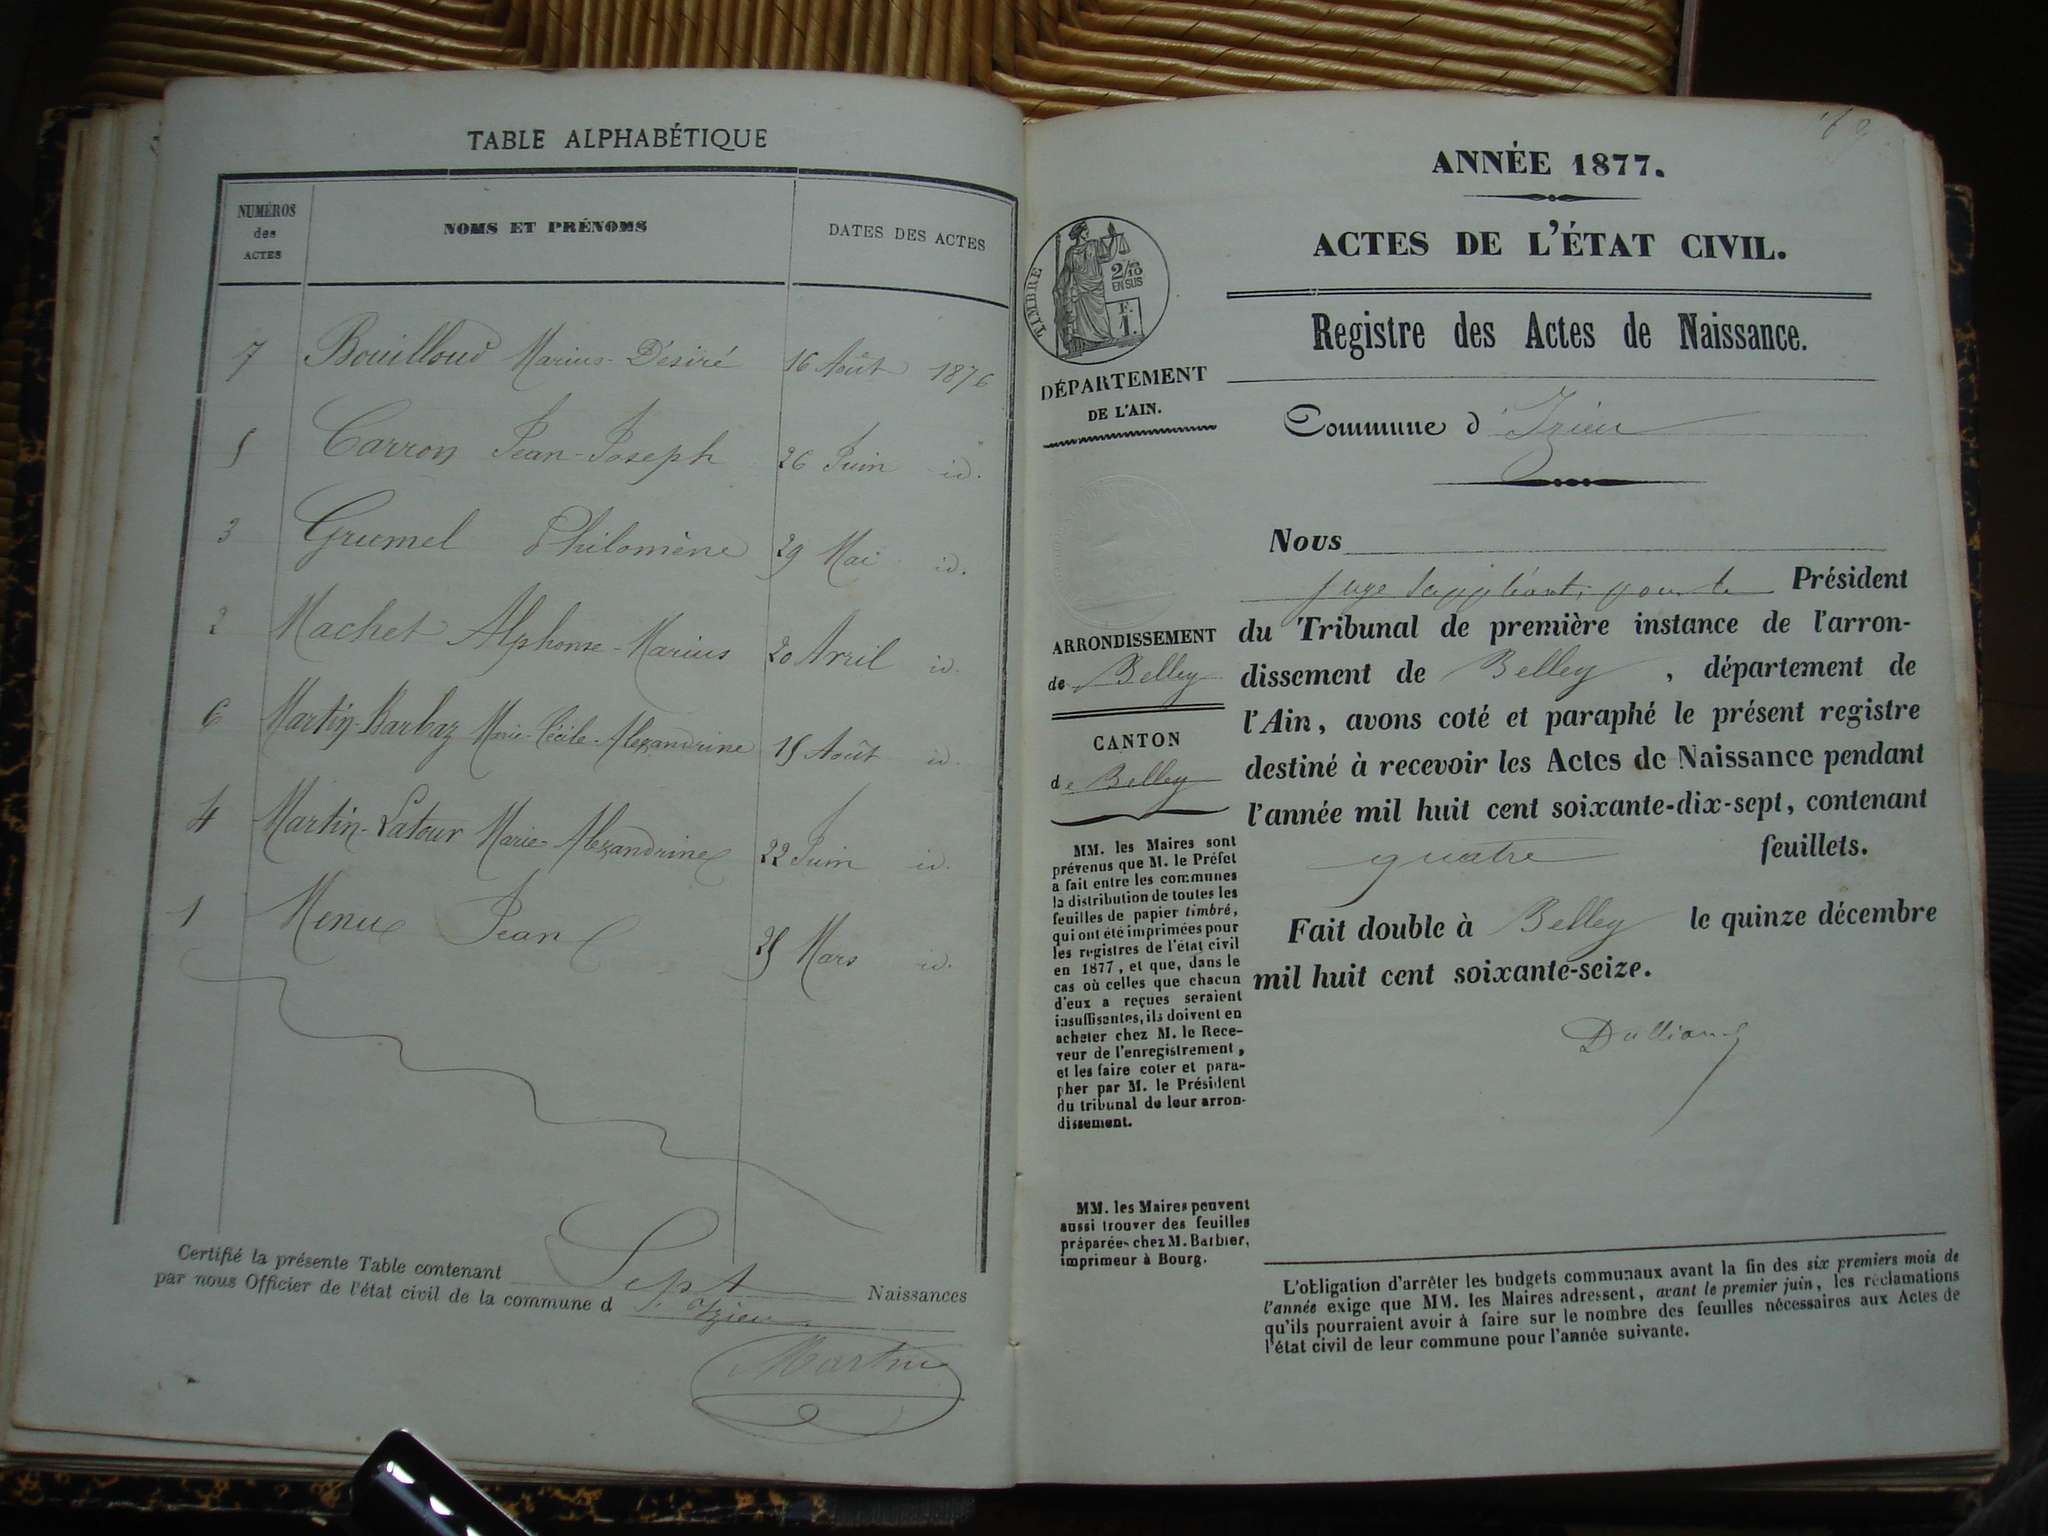 TABLE ALPHABÉTIQUE
NUMÉROS des ACTES NOMS ET PRÉNOMS DATES DES ACTES
7 Bouilloud Marius-Désiré 16 Août 1876
5 Carron Jean-Joseph 26 Juin id.
3 Grumel Philomène 29 Mai id.
2 Machet Alphonse-Marius 20 Avril id.
6 Martin-Barbaz Marie-Cécile-Alexandrine 15 Août id.
4 Martin-Latour Marie-Alexandrine 22 Juin id.
1 Menu Jean 25 Mars id.
Certifié la présente Table contenant Sept Naissances
par nous Officier de l'état civil de la commune d'Izieu
Martin
ANNÉE 1877.
ACTES DE L'ÉTAT CIVIL.
Registre des Actes de Naissance.
TIMBRE
2/10
EN SUS
F.
1.
DÉPARTEMENT
DE L'AIN.
Commune d'Izieu
ARRONDISSEMENT
de Belley
CANTON
de Belley
MM. les Maires sont
prévenus que M. le Préfet
a fait entre les communes
la distribution de toutes les
feuilles de papier timbré,
qui ont été imprimées pour
les registres de l'état civil
en 1877, et que, dans le
cas où celles que chacun
d'eux a reçues seraient
insuffisantes, ils doivent en
acheter chez M. le Rece-
veur de l'enregistrement,
et les faire coter et para-
pher par M. le Président
du tribunal de leur arron-
dissement.
MM. les Maires peuvent
aussi trouver des feuilles
préparées chez M. Barbier,
imprimeur à Bourg.
Nous
juge suppléant, pour le Président
du Tribunal de première instance de l'arron-
dissement de Belley, département de
l'Ain, avons coté et paraphé le présent registre
destiné à recevoir les Actes de Naissance pendant
l'année mil huit cent soixante-dix-sept, contenant
quatre feuillets.
Fait double à Belley le quinze décembre
mil huit cent soixante-seize.
L'obligation d'arrêter les budgets communaux avant la fin des six premiers mois de
l'année exige que MM. les Maires adressent, avant le premier juin, les réclamations
qu'ils pourraient avoir à faire sur le nombre des feuilles nécessaires aux Actes de
l'état civil de leur commune pour l'année suivante.